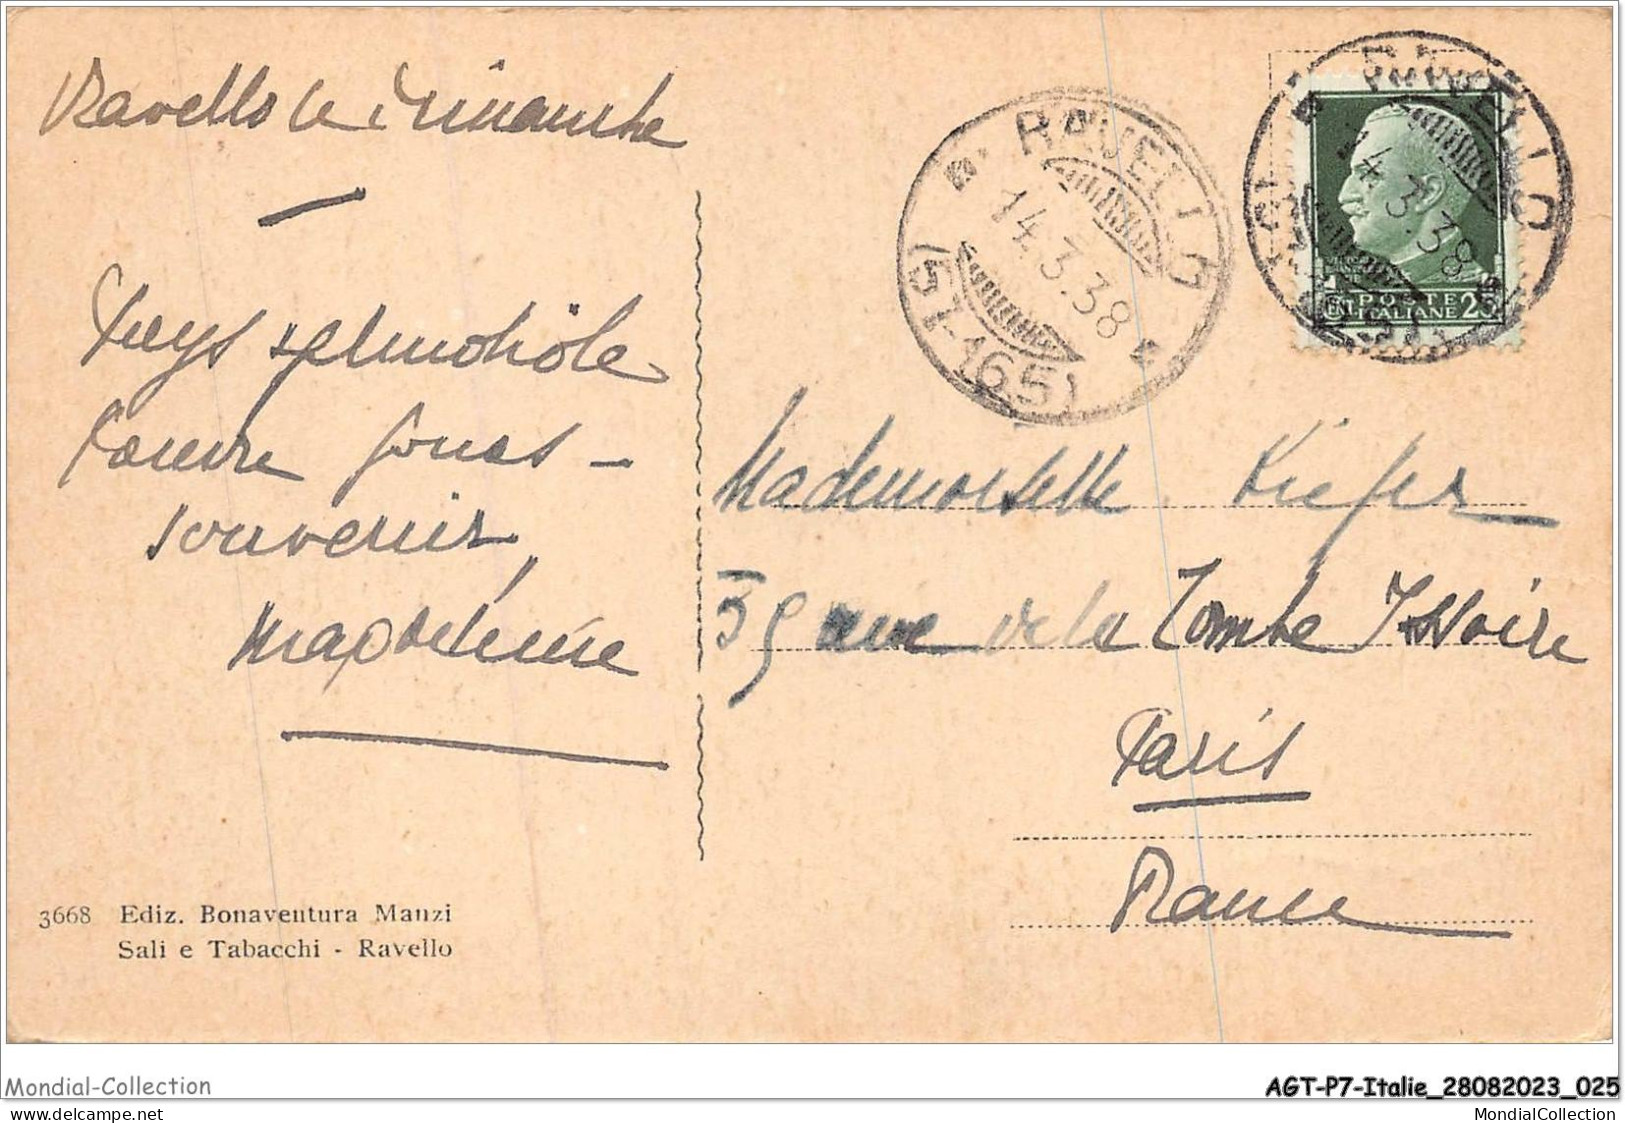 Ravello le dimanche
Pays splendide
souvenir
Magdeleine
3668 Ediz. Bonaventura Manzi
Sali e Tabacchi - Ravello
RAVELLO
14.3.38
(51-165)
RAVELLO
14.3.38
POSTE
CENT. ITALIANE 25
Mademoiselle Kiefer
39 rue de la Tombe Issoire
Paris
France
Mondial-Collection
AGT-P7-Italie_28082023_025
MondialCollection